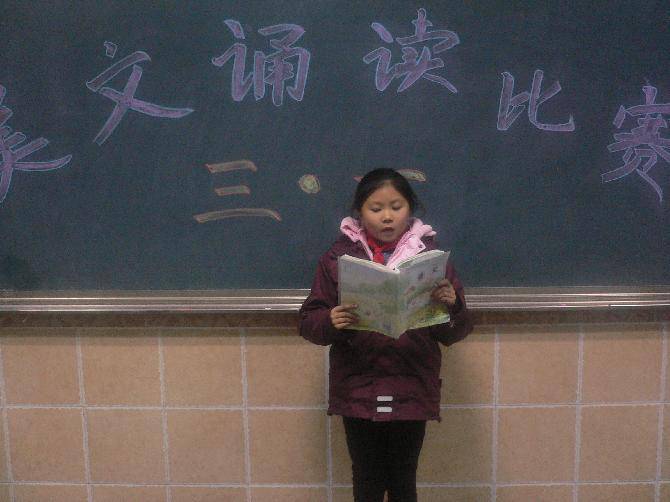 文诵读比赛
三·